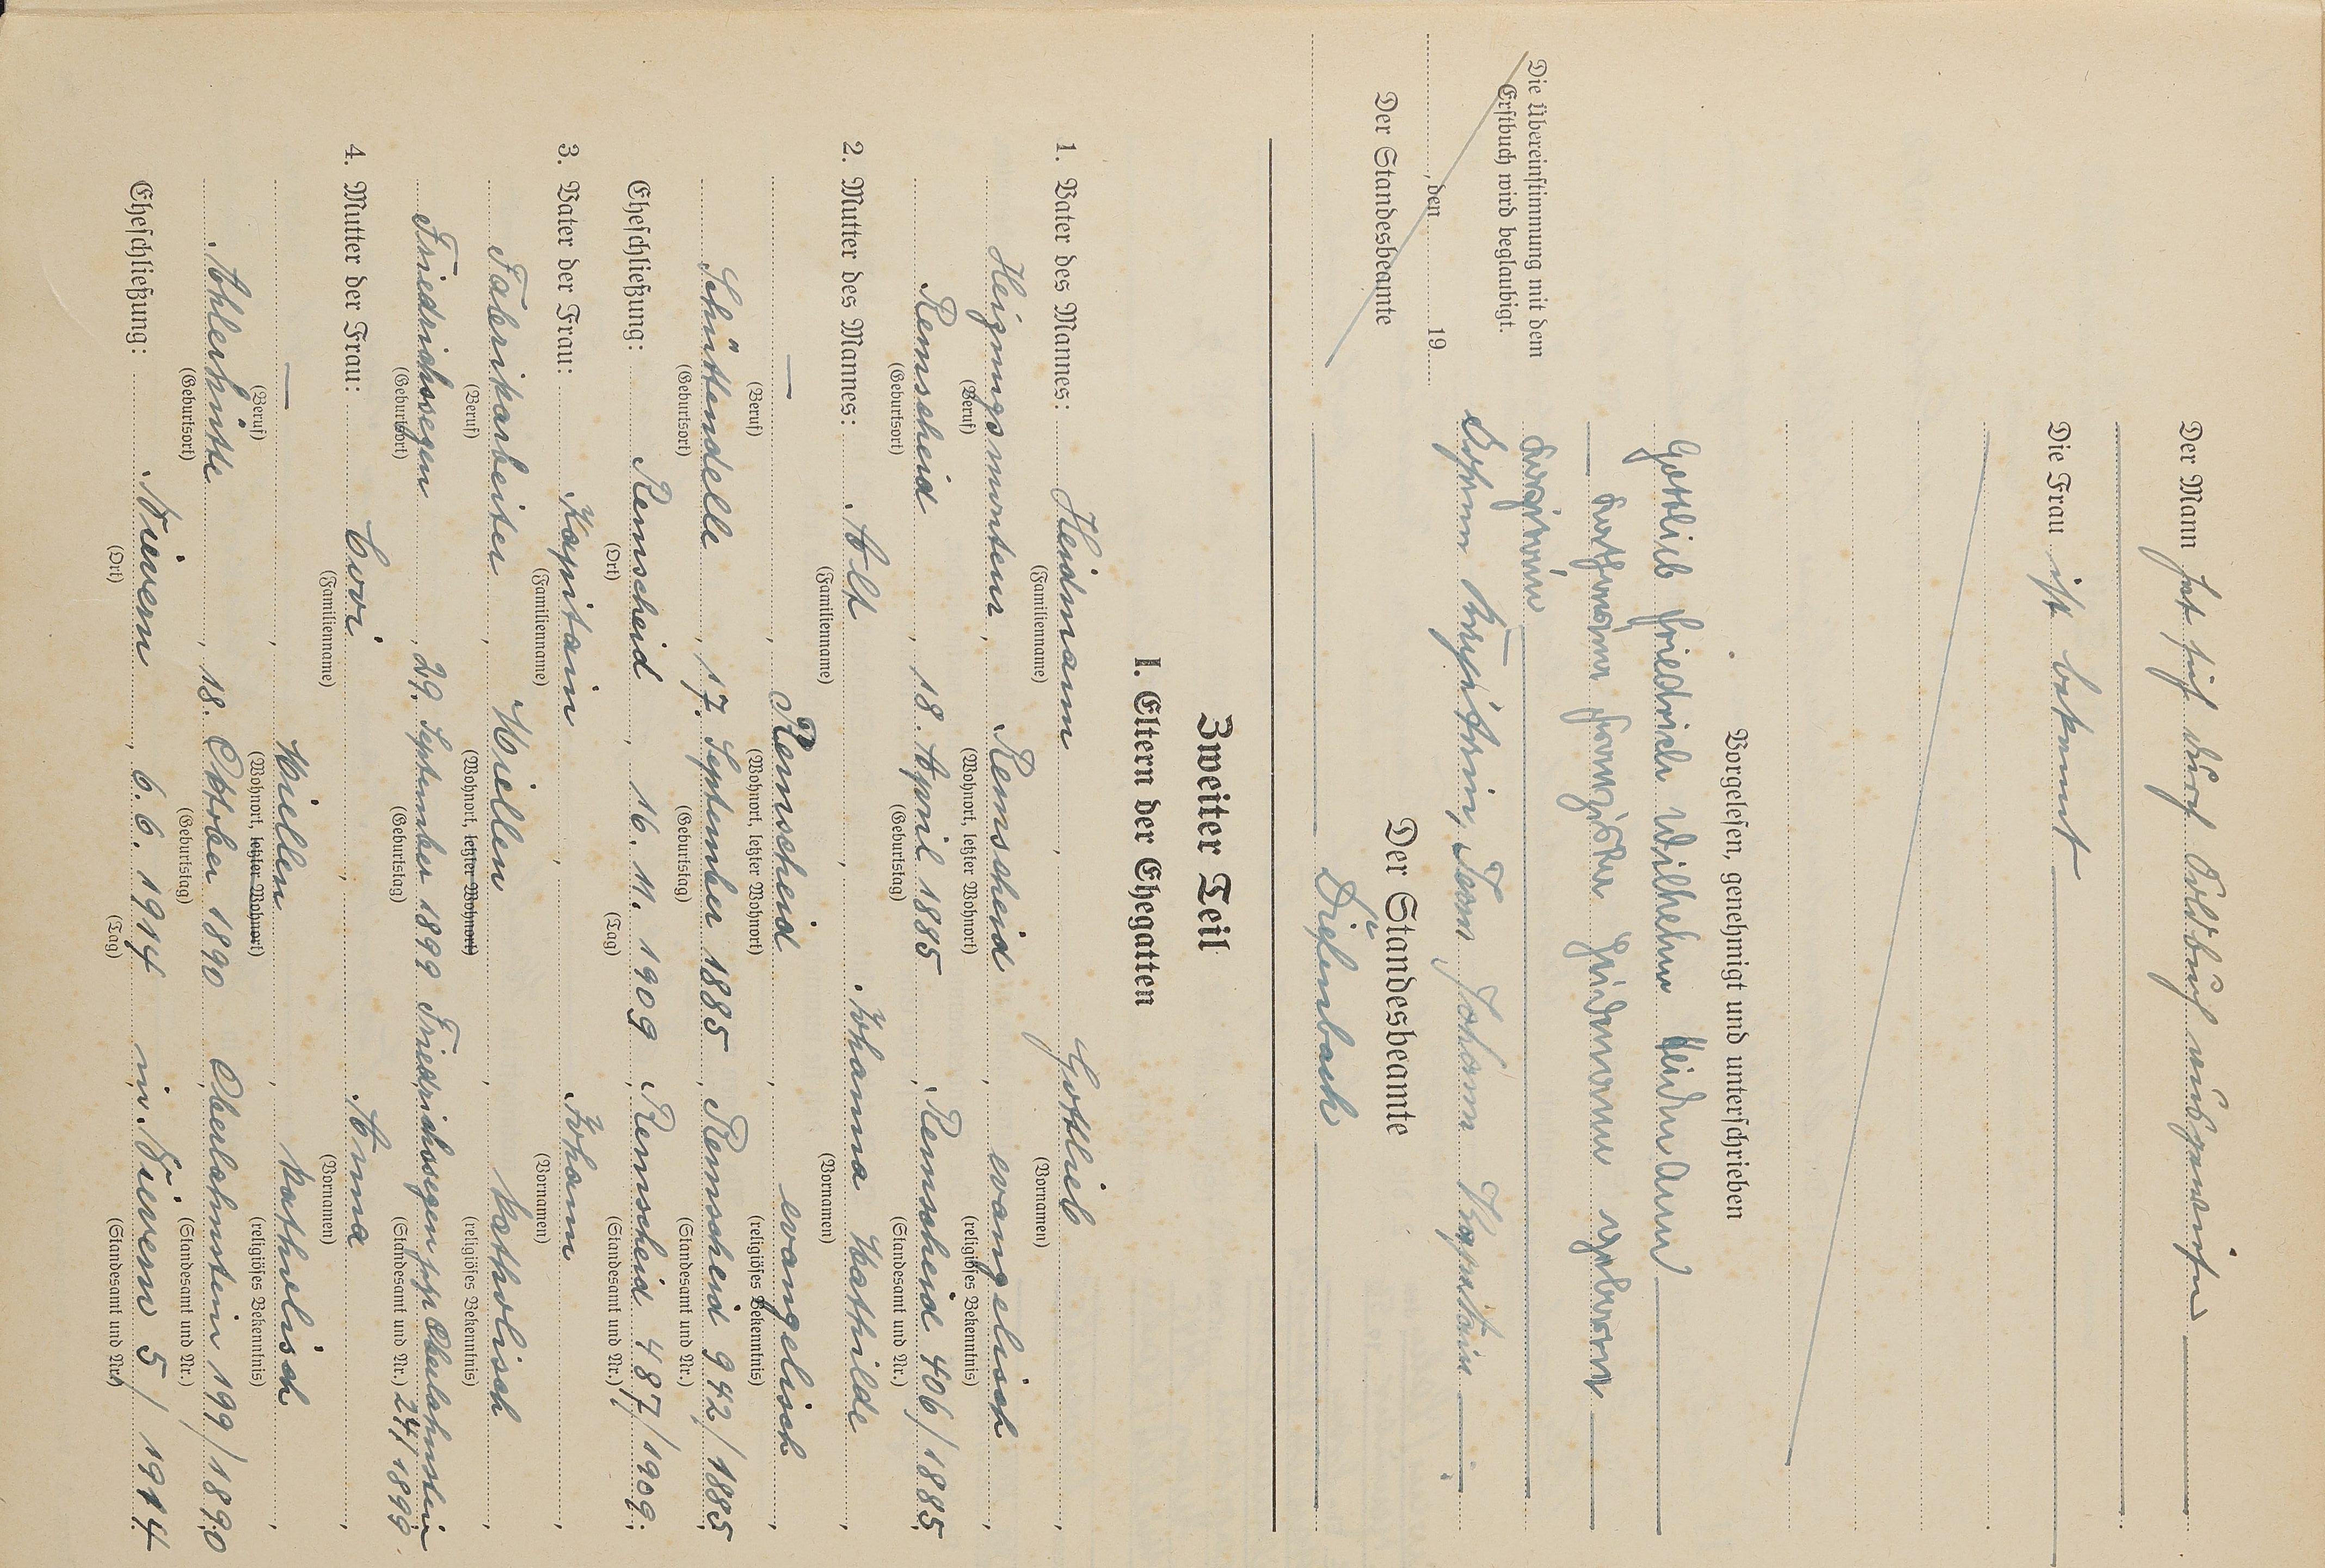 Der Mann hat sich durch Soldbuch ausgewiesen
Die Frau ist bekannt
Vorgelesen, genehmigt und unterschrieben
Gottlieb Friedrich Wilhelm Heidmann
Katharina Franziska Heidmann geborene
Kapitain
Johann Kapitain
Die Übereinstimmung mit dem
Erstbuch wird beglaubigt.
, den 19
Der Standesbeamte
Der Standesbeamte
Zweiter Teil
I. Eltern der Ehegatten
1. Vater des Mannes: Heidmann Gottlieb ,
(Familienname) (Vornamen)
Heizungsmonteur , Remscheid , evangelisch ,
(Beruf) (Wohnort, letzter Wohnort) (religiöses Bekenntnis)
Remscheid , 18. April 1885 , Remscheid 406/1885 ;
(Geburtsort) (Geburtstag) (Standesamt und Nr.)
2. Mutter des Mannes: Johanna Mathilde ,
(Familienname) (Vornamen)
— , Remscheid , evangelisch ,
(Beruf) (Wohnort, letzter Wohnort) (religiöses Bekenntnis)
Schüttendelle , 17. September 1885 , Remscheid 942/1885 ;
(Geburtsort) (Geburtstag) (Standesamt und Nr.)
Eheschließung: Remscheid , 16. 11. 1909 , Remscheid 487/1909.
(Ort) (Tag) (Standesamt und Nr.)
3. Vater der Frau: Kapitain , Johann ,
(Familienname) (Vornamen)
Fabrikarbeiter , Miellen , katholisch ,
(Beruf) (Wohnort, letzter Wohnort) (religiöses Bekenntnis)
Friedrichssegen , 29. September 1899 Friedrichssegen jetzt Oberlahnstein
(Geburtsort) (Geburtstag) (Standesamt und Nr.) 247/1899
4. Mutter der Frau: Anna ,
(Familienname) (Vornamen)
— , Miellen , katholisch ,
(Beruf) (Wohnort, letzter Wohnort) (religiöses Bekenntnis)
Ahlerhütte , 18. Oktober 1890 , Oberlahnstein 199/1890
(Geburtsort) (Geburtstag) (Standesamt und Nr.)
Eheschließung: Nievern , 6. 6. 1914 in Nievern 5/1914
(Ort) (Tag) (Standesamt und Nr.)